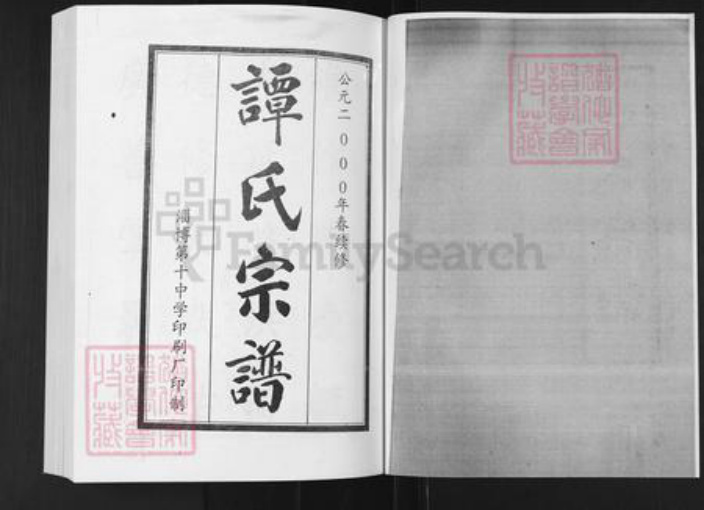 公元二000年春续修
譚氏宗譜
淄博第十中学印刷厂印制
FamilySearch